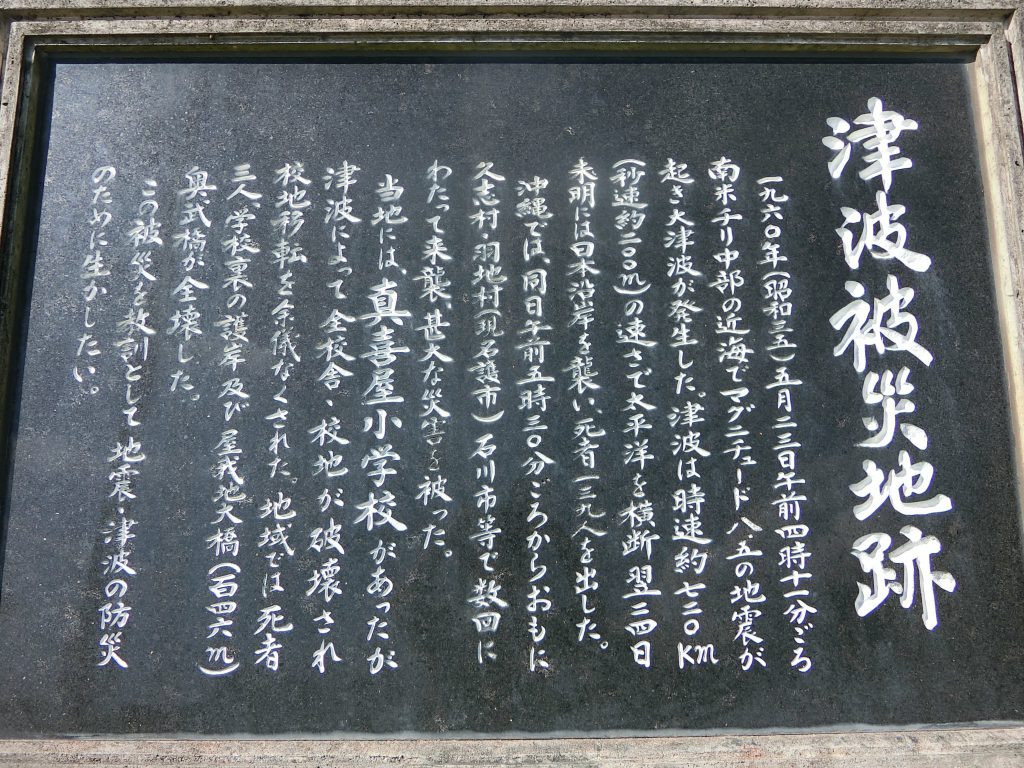 津波被災地跡
一九六〇年(昭和三五)五月二三日午前四時十一分ごろ
南米チリ中部の近海でマグニチュード八.五の地震が
起き大津波が発生した。津波は時速約七二〇km
(秒速約二〇〇m)の速さで太平洋を横断翌二四日
未明には日本沿岸を襲い、死者一三九人を出した。
沖縄では、同日午前五時三〇分ごろからおもに
久志村・羽地村(現名護市)石川市等で数回に
わたって来襲、甚大な災害を被った。
当地には、真喜屋小学校があったが
津波によって全校舎・校地が破壊され
校地移転を余儀なくされた。地域では死者
三人学校裏の護岸及び屋我地大橋(百四六m)
奥武橋が全壊した。
この被災を教訓として地震・津波の防災
のために生かしたい。